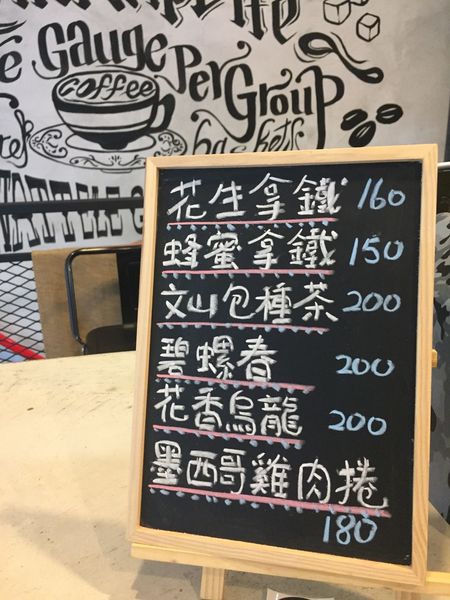 Gauge
coffee
Per
Group
baskets
花生拿鐵 160
蜂蜜拿鐵 150
文山包種茶 200
碧螺春 200
花香烏龍 200
墨西哥雞肉捲
180